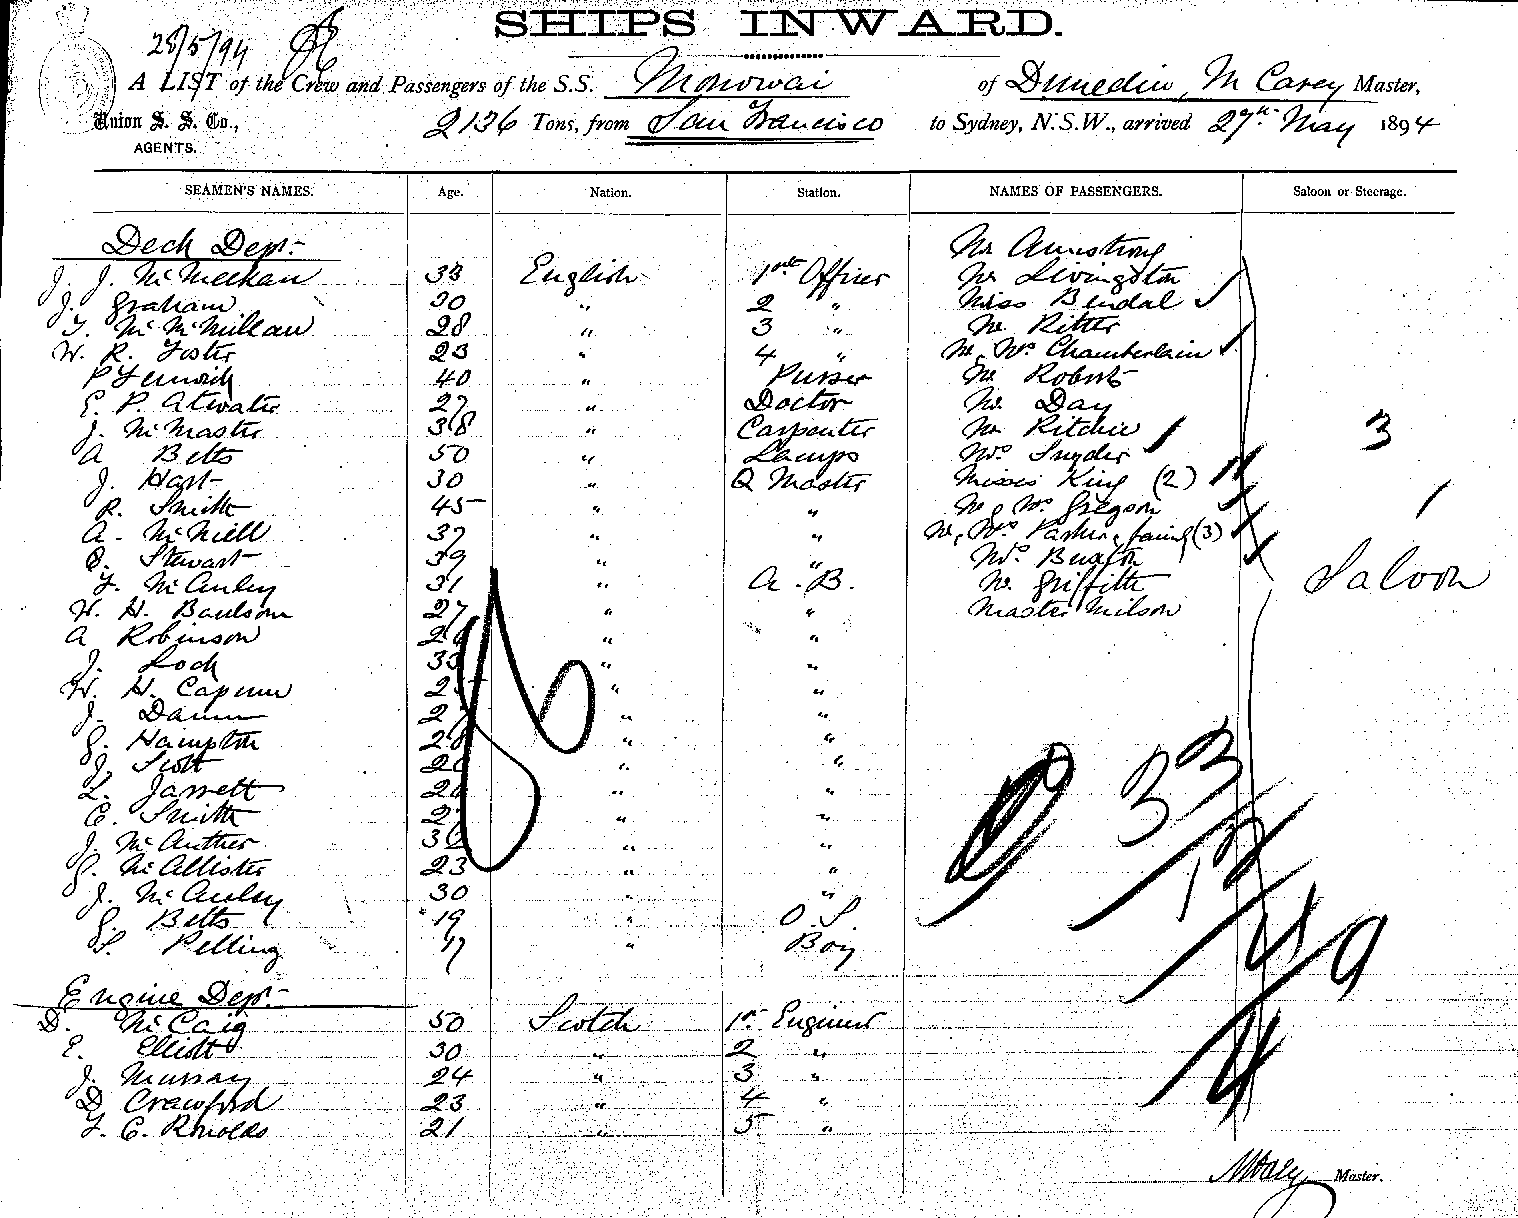 SHIPS INWARD.
28/5/94
A LIST of the Crew and Passengers of the S.S. Monowai of Dunedin, M Carey Master,
Union S. S. Co., 2136 Tons, from San Francisco to Sydney, N.S.W., arrived 27th May 1894
AGENTS.
SEAMEN'S NAMES. Age. Nation. Station. NAMES OF PASSENGERS. Saloon or Steerage.
Deck Dept. Mr Armstrong
J. J. McMeekan 33 English 1st Officer Mr Livingston
J. Graham 30 " 2 " Miss Bendal
T. McMillan 28 " 3 " Mr Ritter
W. R. Foster 23 " 4 " Mr, Mrs Chamberlain
P Fenwick 40 " Purser Mr Roberts
E. P. Atwater 27 " Doctor Mr Day
J. McMaster 38 " Carpenter Mr Ritchie 3
A Betts 50 " Lamps Mrs Snyder
J. Hart 30 " Q Master Misses King (2)
R. Smith 45 " " Mr, Mrs Gregson 1
A. McNeill 37 " " Mr, Mrs (3)
Stewart 39 " " Mrs
McAuley 31 " A. B. Mr Griffith Saloon
W. H. Baulson 27 " " Master Milson
A Robinson " "
J. Lock " "
W. H. " "
J. " "
G. Hampton 28 " "
J. Scott " "
L. Jarrett " "
C. Smith 27 " "
J. McAuther " "
G. McAllister 23 " "
J. McAuley 30 " "
G. Betts 19 " O. S.
S. Pelling 17 " Boy
33
12
4
49
Engine Dept.
D. McCaig 50 Scotch 1st Engineer
E. Elliott 30 " 2 "
J. Murray 24 " 3 "
D Crawford 23 " 4 "
E. Ronolds 21 " 5 "
M Carey Master.